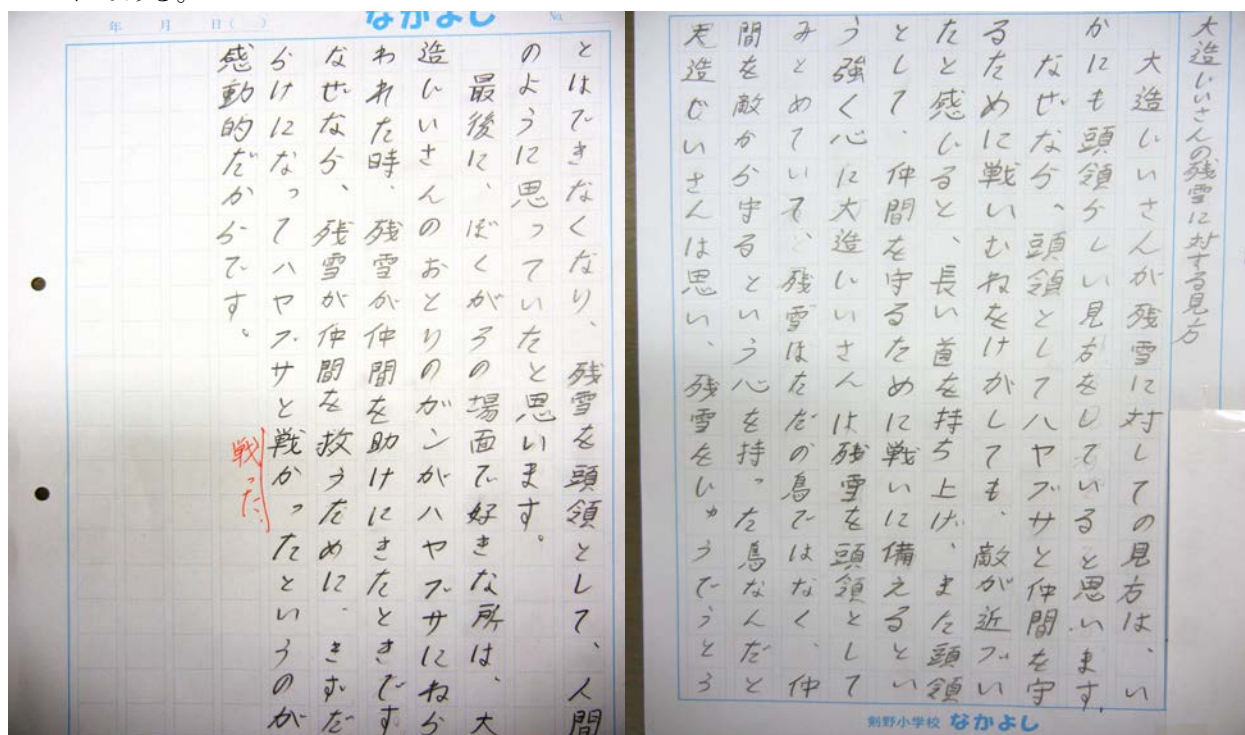 大造じいさんの残雪に対する見方
大造じいさんが残雪に対しての見方は、い
かにも頭領らしい見方をしていると思います。
なぜなら、頭領としてハヤブサと仲間を守
るために戦いむねをけがしても、敵が近づい
たと感じると、長い首を持ち上げ、また頭領
として、仲間を守るために戦いに備えるとい
う強く心に大造じいさんは残雪を頭領として
みとめていて、残雪はただの鳥ではなく、仲
間を敵から守るという心を持った鳥なんだと
大造じいさんは思い、残雪をじゅうでうとう
剣野小学校 なかよし
年 月 日( ) なかよし No.
とはできなくなり、残雪を頭領として、人間
のように思っていたと思います。
最後に、ぼくがろの場面で好きな所は、大
造じいさんのおとりのガンがハヤブサにねら
われた時、残雪が仲間を助けにきたときです
なぜなら、残雪が仲間を救うために、きずだ
らけになってハヤブサと戦かったというのが
戦った
感動的だからです。